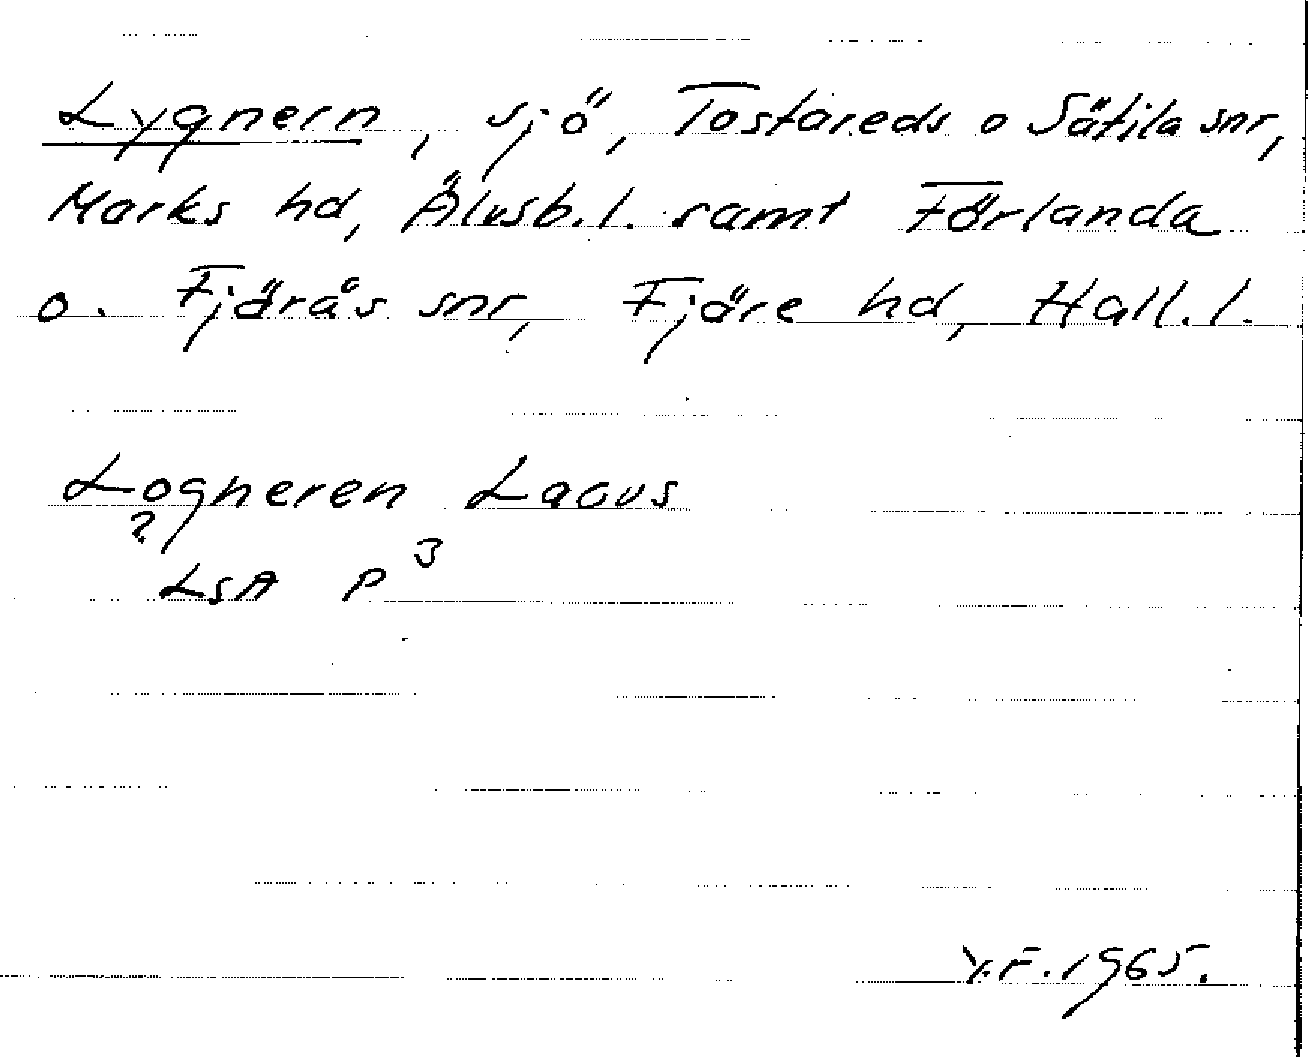 Lygnern, sjö, Tostareds o Sätila snr,
Marks hd, Älvsb.l. samt Förlanda
o. Fjärås snr, Fjäre hd, Hall.l.
Logneren Lacus
?
LSA P 3
Y.F. 1965.